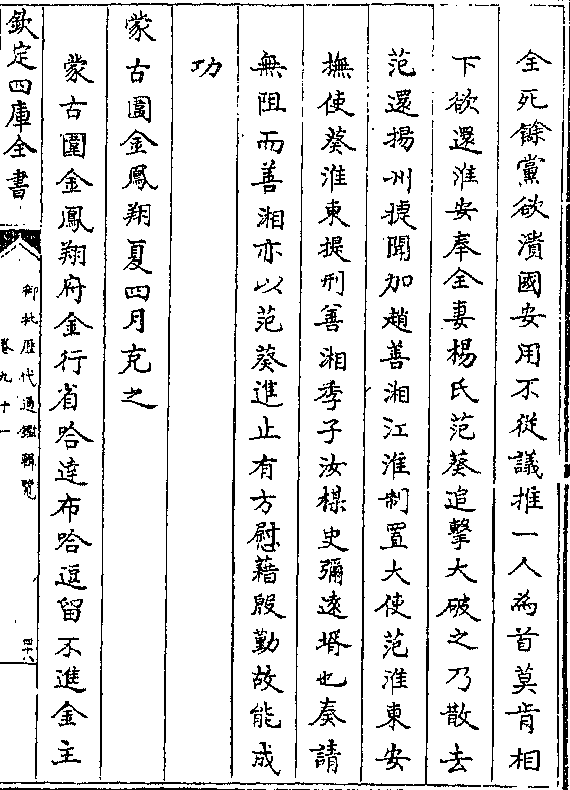 全死餘黨欲潰國安用不從議推一人為首莫肯相
下欲還淮安奉全妻楊氏范葵追擊大破之乃散去
范還揚州捷聞加趙善湘江淮制置大使范淮東安
撫使葵淮東提刑善湘季子汝楳史彌遠壻也奏請
無阻而善湘亦以范葵進止有方慰藉殷勤故能成
功
蒙古圍金鳳翔夏四月克之
蒙古圍金鳳翔府金行省哈達布哈逗留不進金主
欽定四庫全書
御批歷代通鑑輯覽
卷九十一
四十八